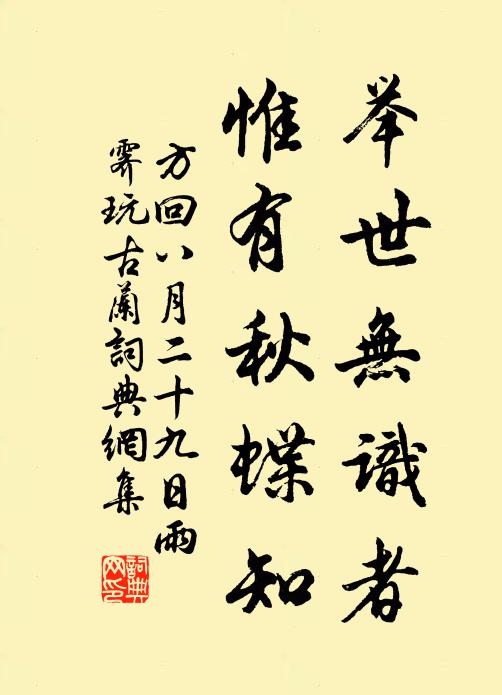 举世無識者
惟有秋蝶知
方回八月二十九日雨
霽玩古蘭詞典網集
詞典
网印